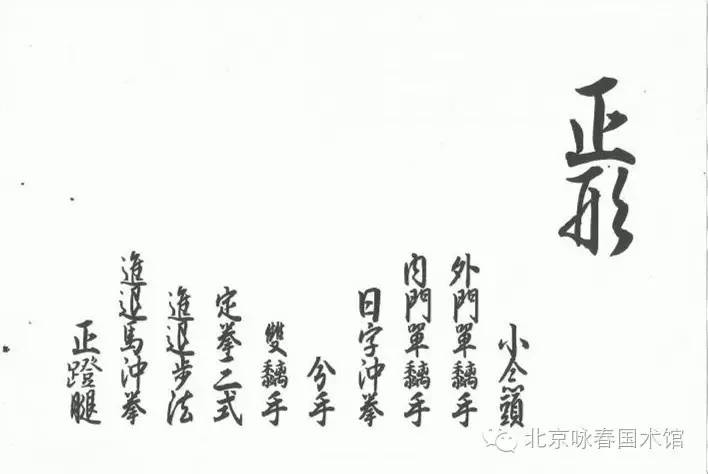 正形
小念頭
外門單黐手
內門單黐手
日字沖拳
分手
雙黐手
定拳二式
進退步法
進退馬沖拳
正蹬腿
北京咏春国术馆